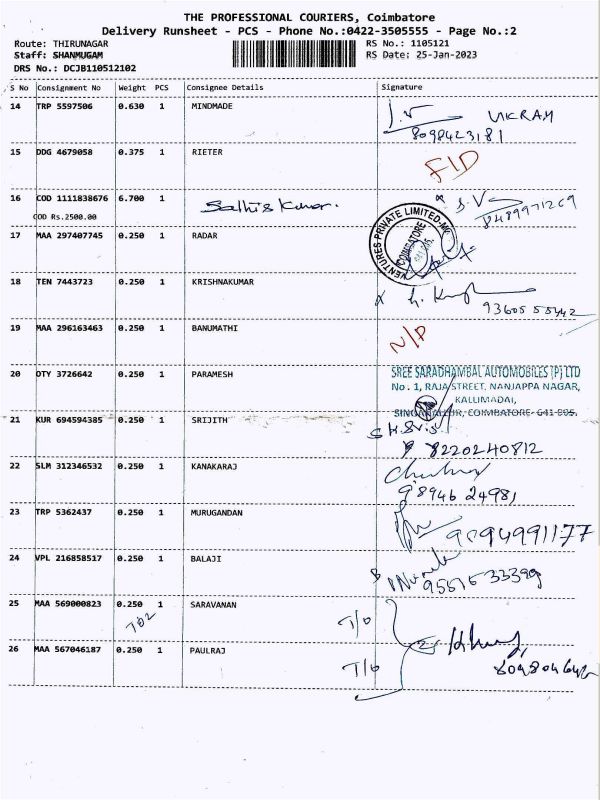 THE PROFESSIONAL COURIERS, Coimbatore
Delivery Runsheet - PCS - Phone No.:0422-3505555 - Page No.:2
Route: THIRUNAGAR RS No.: 1105121
Staff: SHANMUGAM RS Date: 25-Jan-2023
DRS No.: DCJB110512102
S No Consignment No Weight PCS Consignee Details Signature
14 TRP 5597506 0.630 1 MINDMADE VIKRAM
8098423181
15 DDG 4679058 0.375 1 RIETER F/D
16 COD 1111838676 6.700 1 Sathis Kumar. S.V
COD Rs.2500.00 8489971269
17 MAA 297407745 0.250 1 RADAR VENTURES PRIVATE LIMITED COIMBATORE
18 TEN 7443723 0.250 1 KRISHNAKUMAR
9360555342
19 MAA 296163463 0.250 1 BANUMATHI N/P
20 OTY 3726642 0.250 1 PARAMESH SREE SARADHAMBAL AUTOMOBILES (P) LTD
No : 1, RAJA STREET, NANJAPPA NAGAR,
KALLIMADAI,
SINGANALLUR, COIMBATORE- 641 005.
21 KUR 694594385 0.250 1 SRIJITH
8220240812
22 SLM 312346532 0.250 1 KANAKARAJ
98946 24981
23 TRP 5362437 0.250 1 MURUGANDAN 9094991177
24 VPL 216858517 0.250 1 BALAJI
9551533399
25 MAA 569000823 0.250 1 SARAVANAN T/O
702
26 MAA 567046187 0.250 1 PAULRAJ T/O